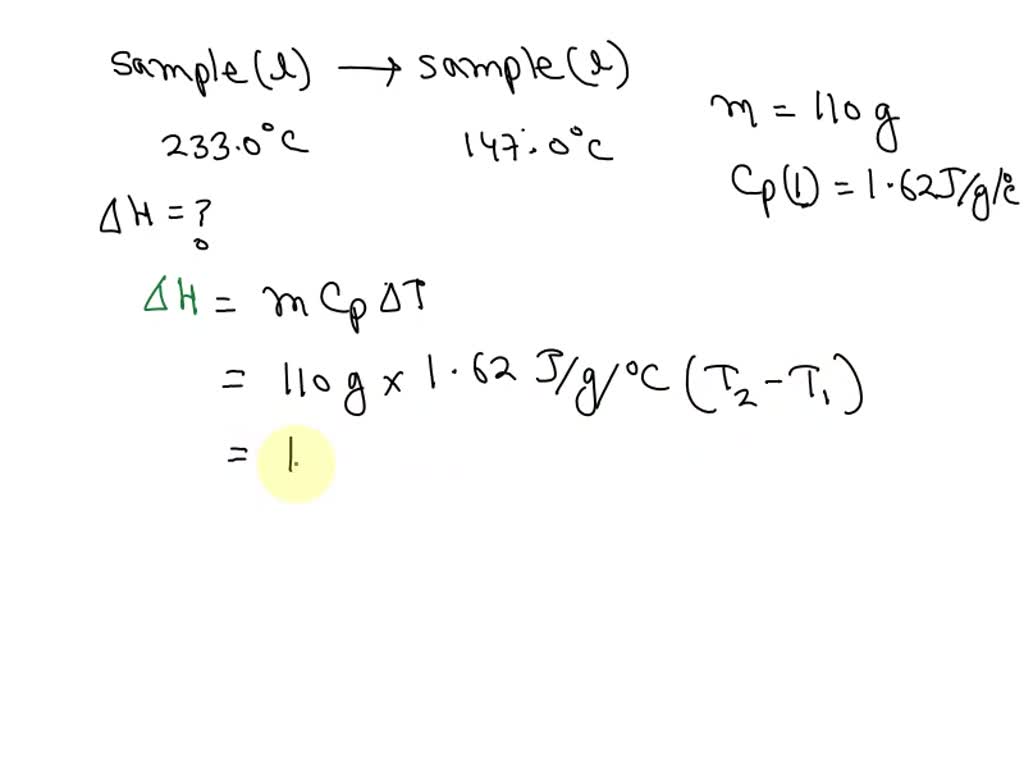 sample(l) → sample(l)
233.0°C 147.0°C
m = 110 g
Cp(l) = 1.62 J/g/°C
ΔH = ?
ΔH = m Cp ΔT
= 110 g x 1.62 J/g/°C (T₂ - T₁)
= 1.